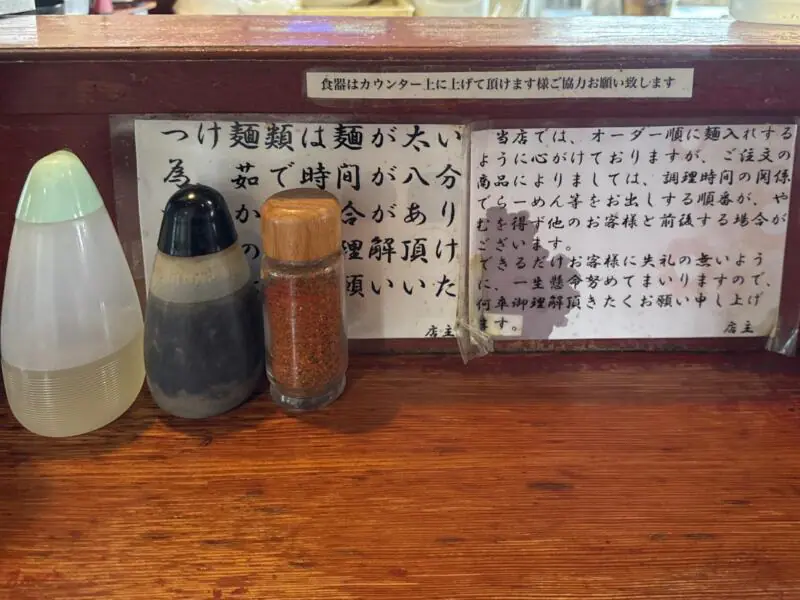 食器はカウンター上に上げて頂けます様ご協力お願い致します
つけ麺類は麺が太い
為 茹で時間が八分
か 合があり
の 理解頂け
願いいた
店主
当店では、オーダー順に麺入れする
ように心がけておりますが、ご注文の
商品によりましては、調理時間の関係
でらーめん等をお出しする順番が、や
むを得ず他のお客様と前後する場合が
ございます。
できるだけお客様に失礼の無いよう
に、一生懸命努めてまいりますので、
何卒御理解頂きたくお願い申し上げ
ます。
店主